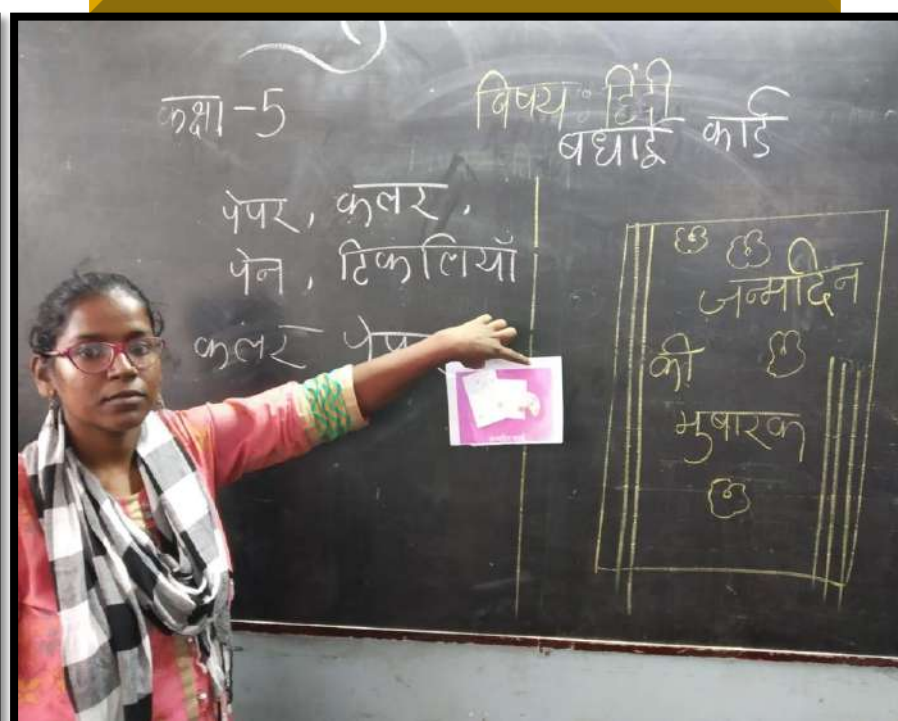 कक्षा-5
बिषय: हिंदी
बधाई कार्ड
पेपर, कलर,
पेन, टिकलियाँ
कलर पेपर
जन्मदिन
की
मुबारक